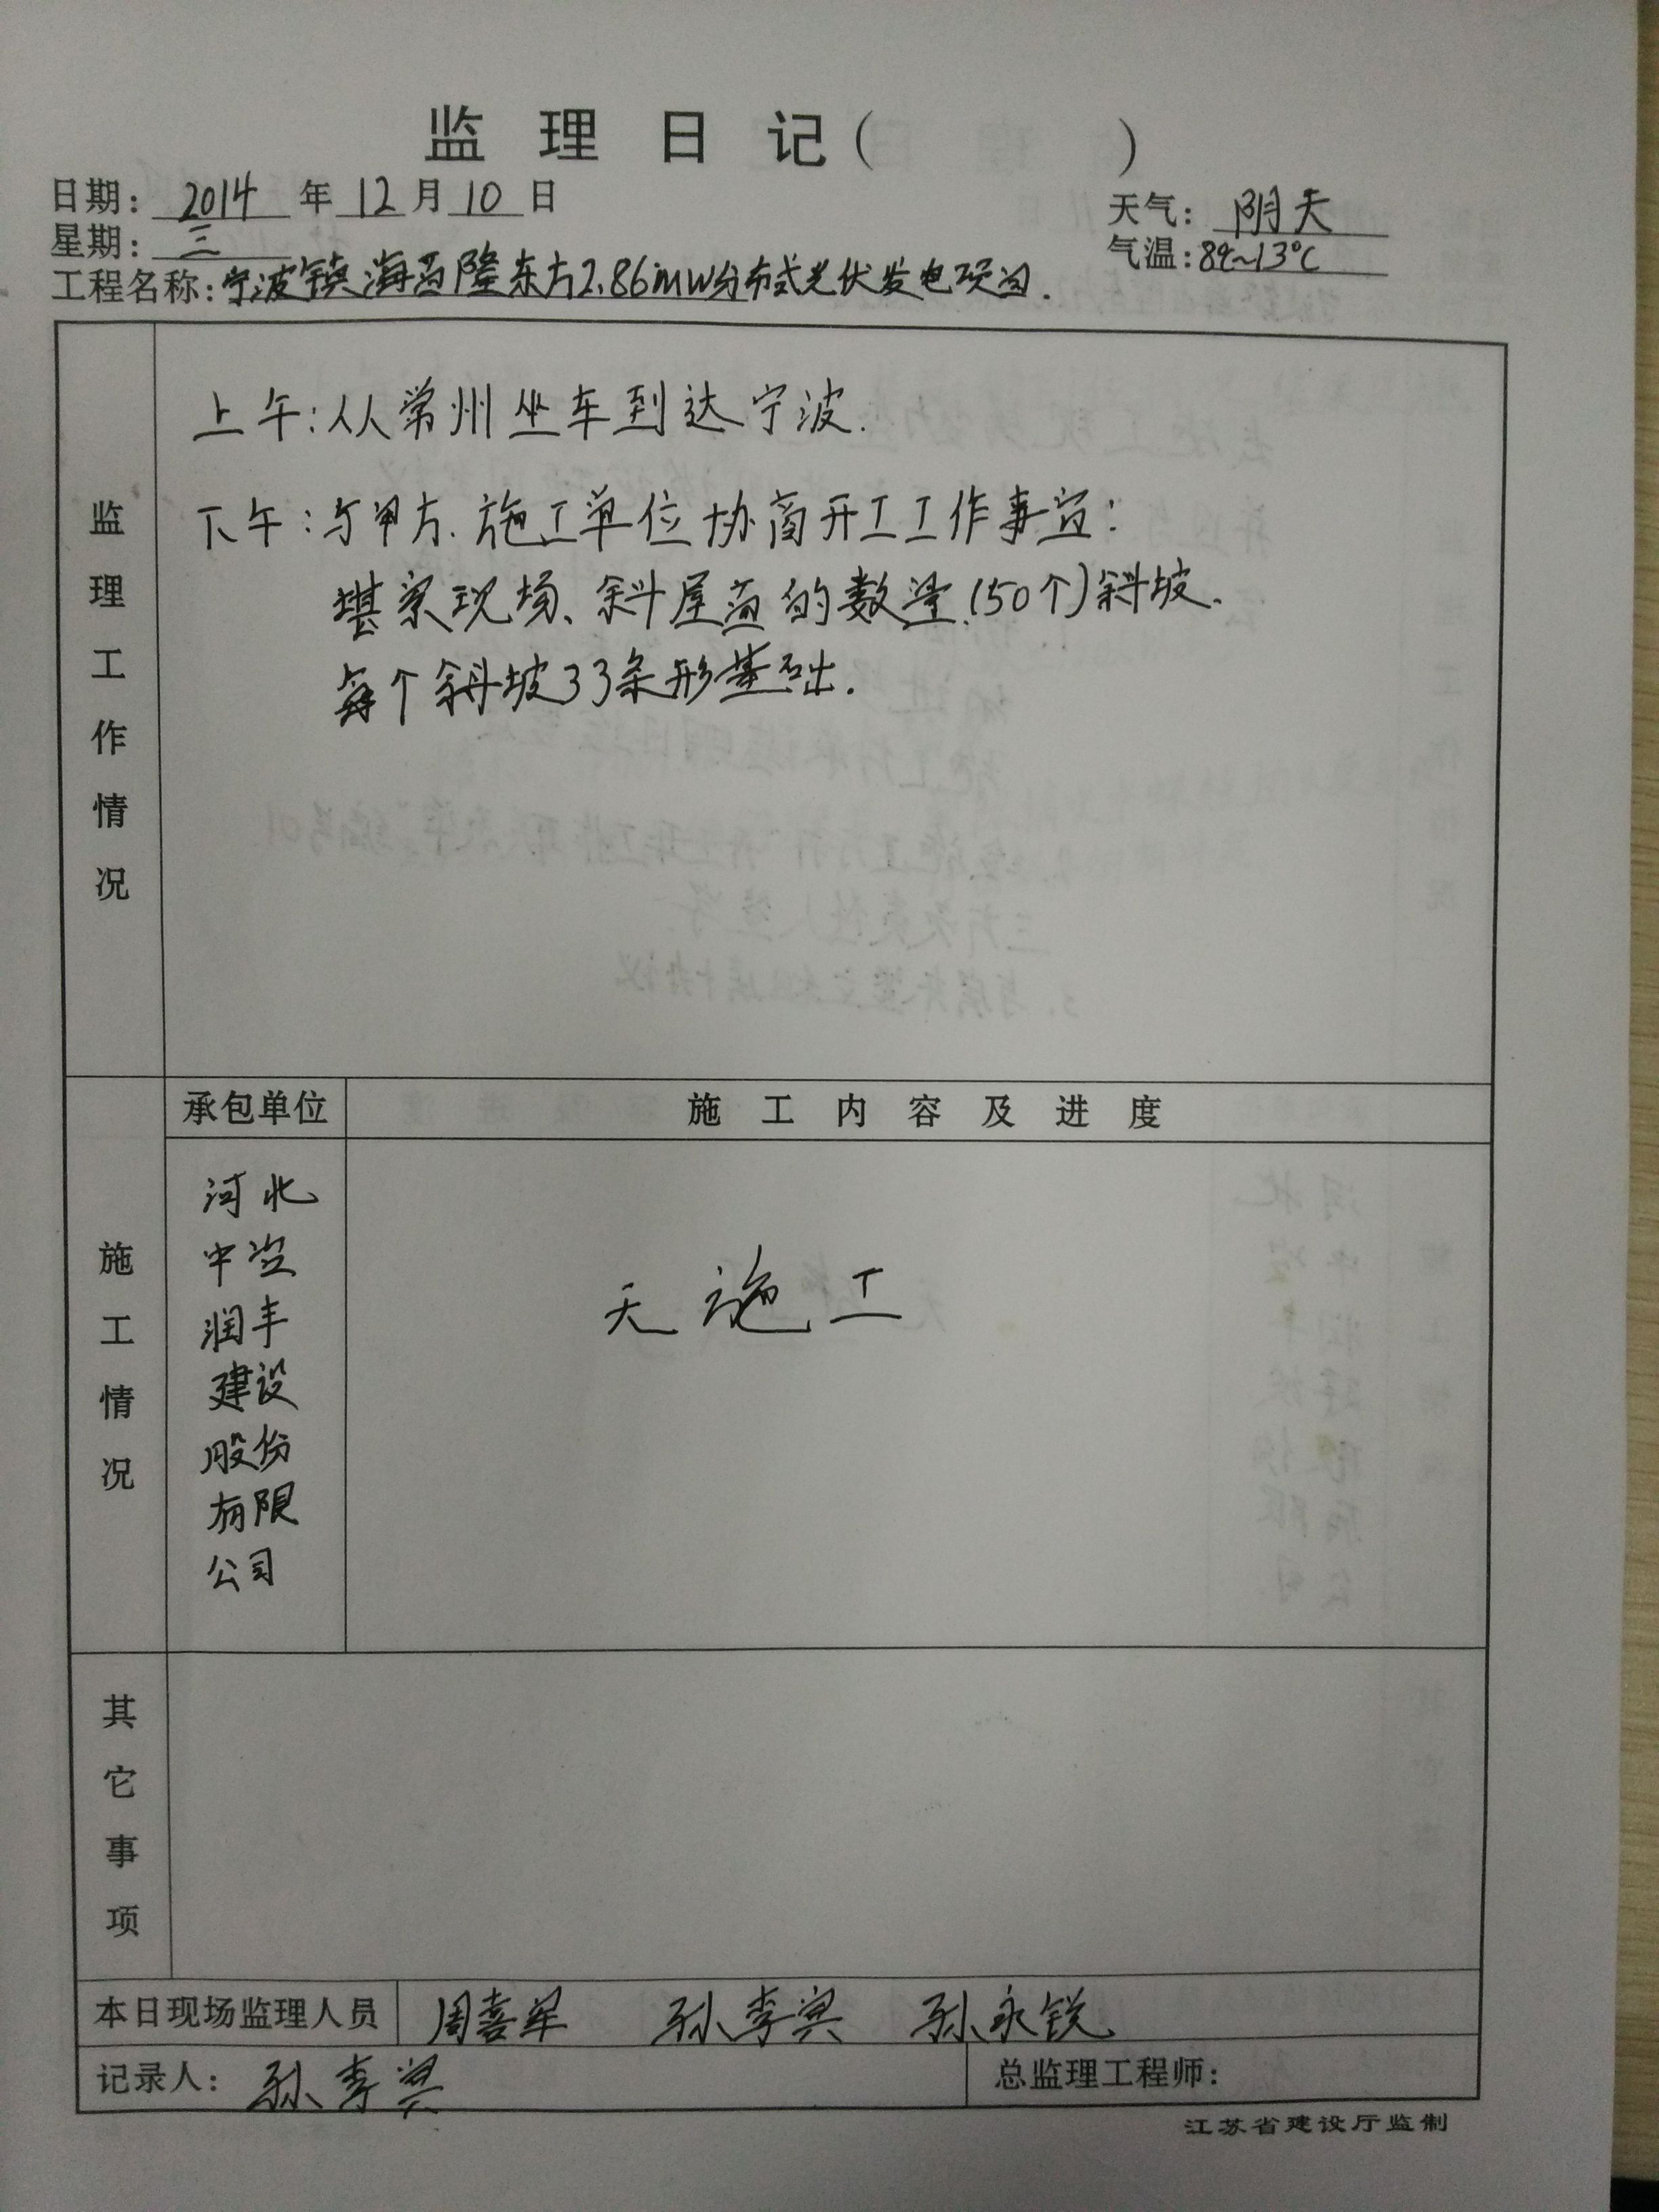 监理日记( )
日期: 2014 年 12 月 10 日
天气: 阴天
星期: 三
气温: 8℃~13℃
工程名称: 宁波镇海西隆东方2.86MW分布式光伏发电项目.
监理工作情况
上午:从常州坐车到达宁波.
下午:与甲方.施工单位协商开工工作事宜:
堪察现场、斜屋面的数量.(50个)斜坡.
每个斜坡33条形基础.
施工情况
承包单位
施工内容及进度
河北
润丰
建设
股份
有限
公司
无施工
其它事项
本日现场监理人员
周喜军 孙永锐
记录人:
总监理工程师:
江苏省建设厅监制